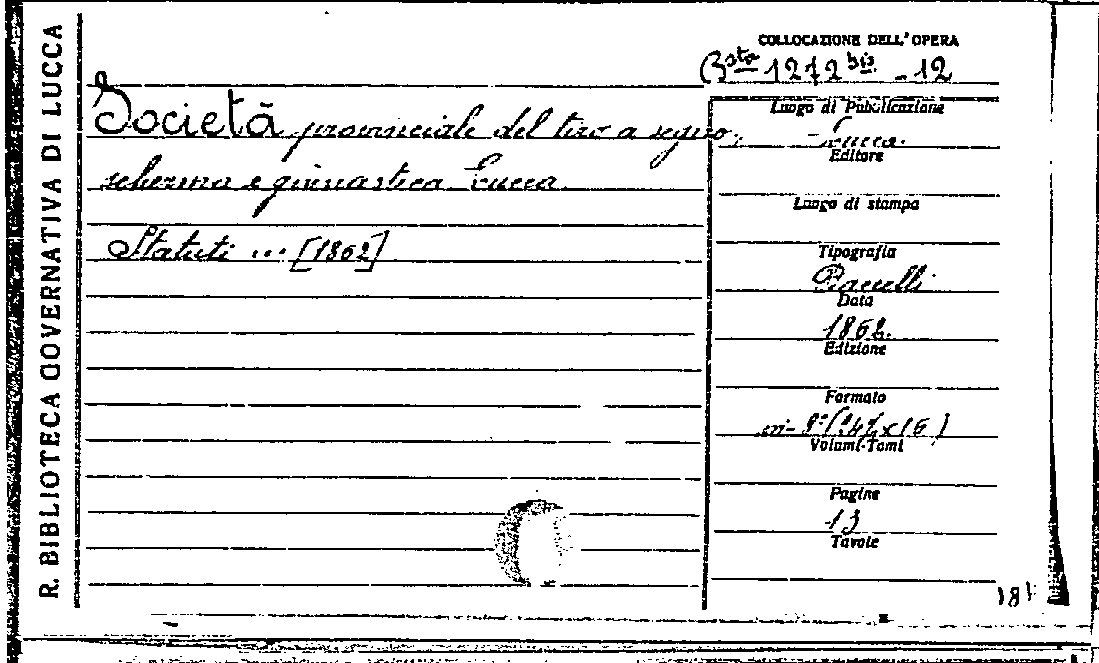 R. BIBLIOTECA GOVERNATIVA DI LUCCA
COLLOCAZIONE DELL'OPERA
Bsta 1272 bis - 12
Società provinciale del tiro a segno,
scherma e ginnastica Lucca
Statuti ... [1862]
Luogo di Pubblicazione
Lucca
Editore
Luogo di stampa
Tipografia
Data
1862.
Edizione
Formato
in-8°
Volumi-Tomi
Pagine
13
Tavole